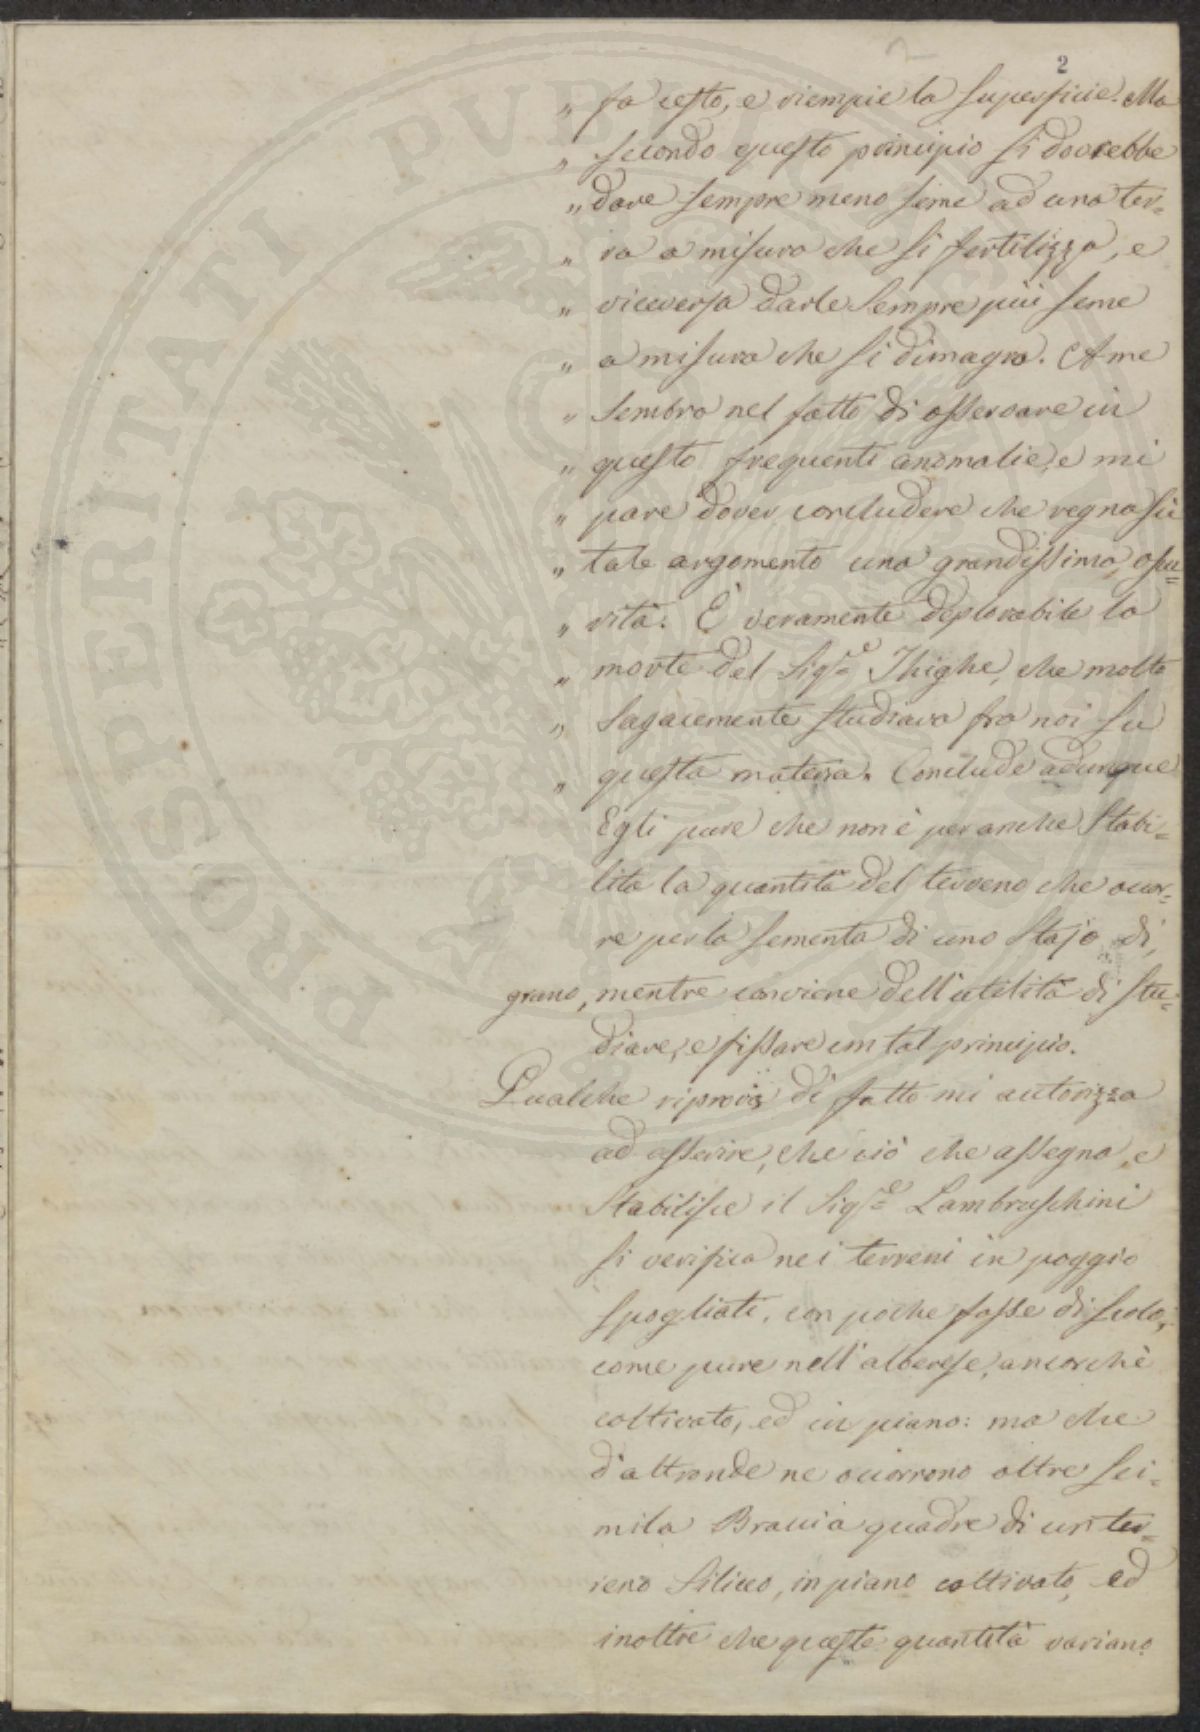 2
„ fa cesto, e riempie la superficie. Ma
„ secondo questo principio si dovrebbe
„ dare sempre meno seme ad una ter=
„ ra a misura che si fertilizza, e
„ viceversa darle sempre più seme
„ a misura che si dimagra. A me
„ sembra nel fatto di osservare in
„ questo frequenti anomalie, e mi
„ pare dover concludere che regna su
„ tale argomento una grandissima oscu=
„ rità. È veramente deplorabile la
„ morte del Sig.re Thighe, che molto
„ sagacemente studiava fra noi su
„ questa materia. Conclude adunque
Egli pure che non è per anche stabi=
lita la quantità del terreno che occor=
re per la sementa di uno Stajo di
grano, mentre conviene dell'utilità di stu=
diare, e fissare un tal principio.
Qualche riprova di fatto mi autorizza
ad asserire, che ciò che assegna, e
stabilisce il Sig.re Lambruschini
si verifica nei terreni in poggio
spogliati, con poche fosse di scolo,
come pure nell'alberese, ancorchè
coltivato, ed in piano: ma che
d'altronde ne occorrono oltre sei=
mila Braccia quadre di un ter=
reno siliceo, in piano coltivato, ed
inoltre che queste quantità variano
PROSPERITATI PVBLICAE